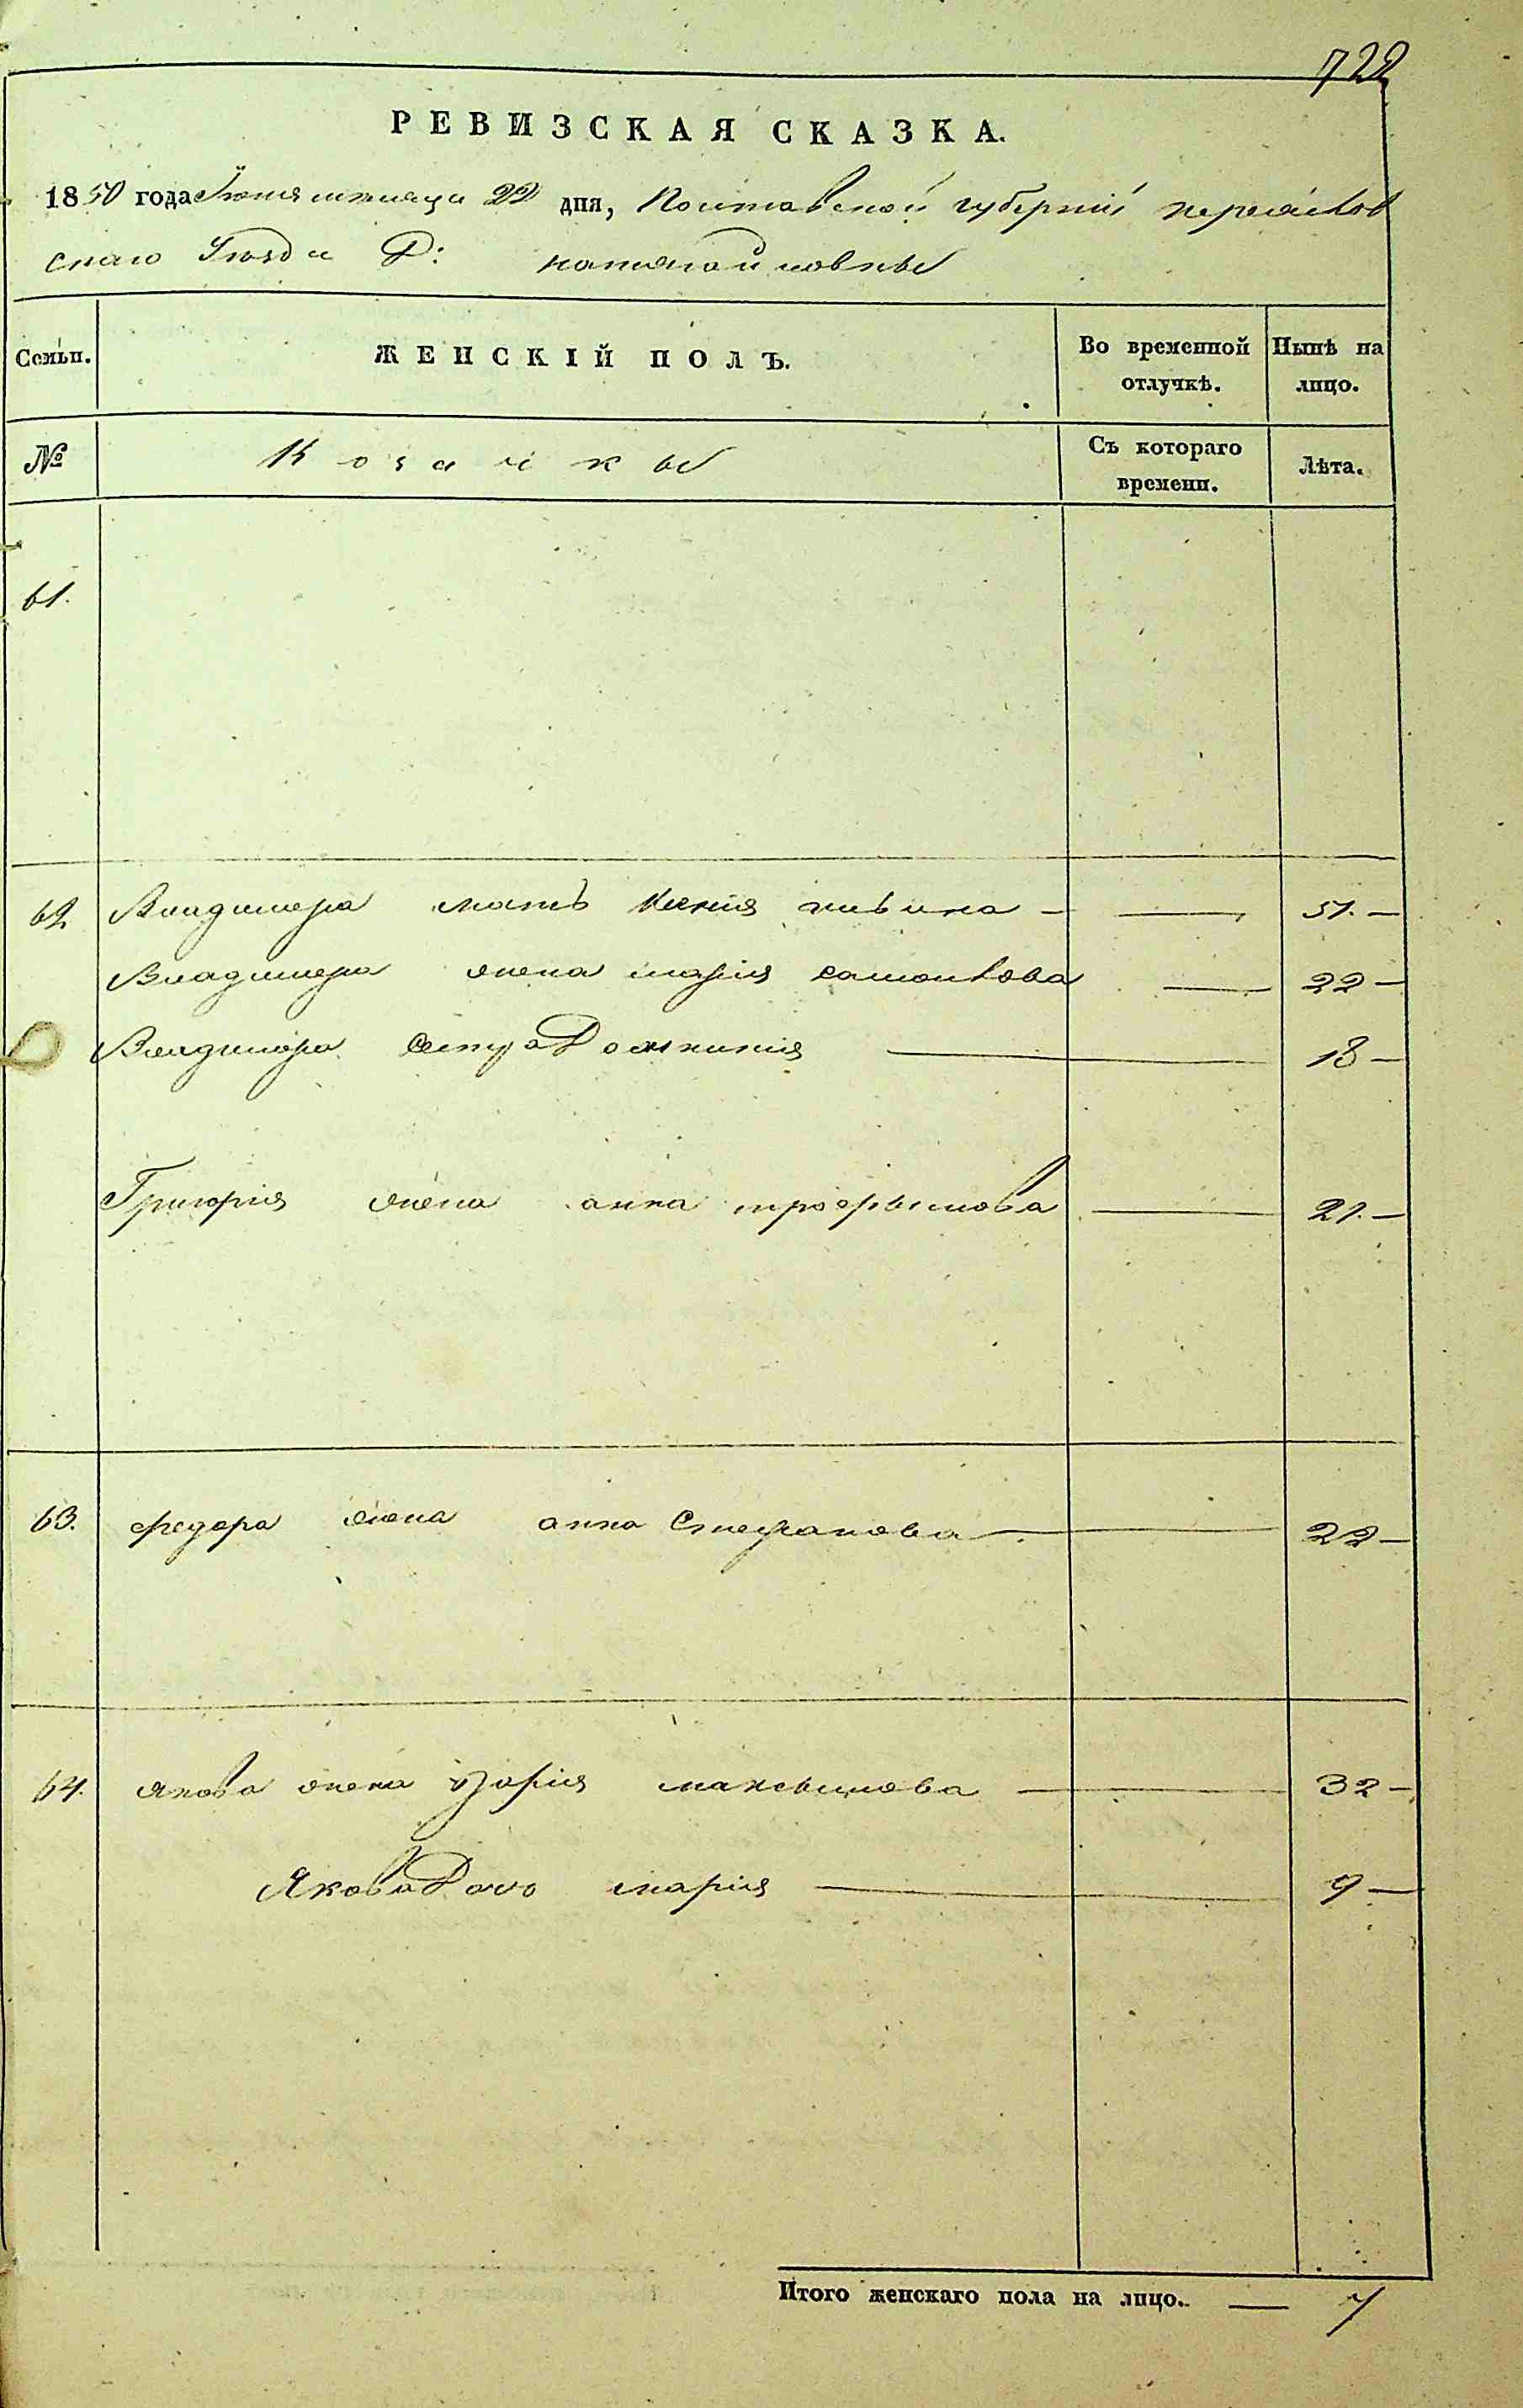 722
РЕВИЗСКАЯ СКАЗКА.
1850 года Июня месяца 22 дня, Полтавской губернии переяслов
скаго Уезда Д:
Семьи.
ЖЕНСКІЙ ПОЛЪ.
Во временной отлучкѣ.
Нынѣ на лицо.
№
Козачкы
Съ котораго времени.
Лѣта.
61.
62 Владимера мать Ксенія — 51. —
Владимера жена марія самойлова — 22 —
Владимера Сестра Домникія — 18 —
Григорія жена анна трофымова — 21. —
63. федора жена анна Стефанова — 22 —
64. якова жена марія максымова — 32 —
Якова Дочь марія — 9 —
Итого женскаго пола на лицо. — 7